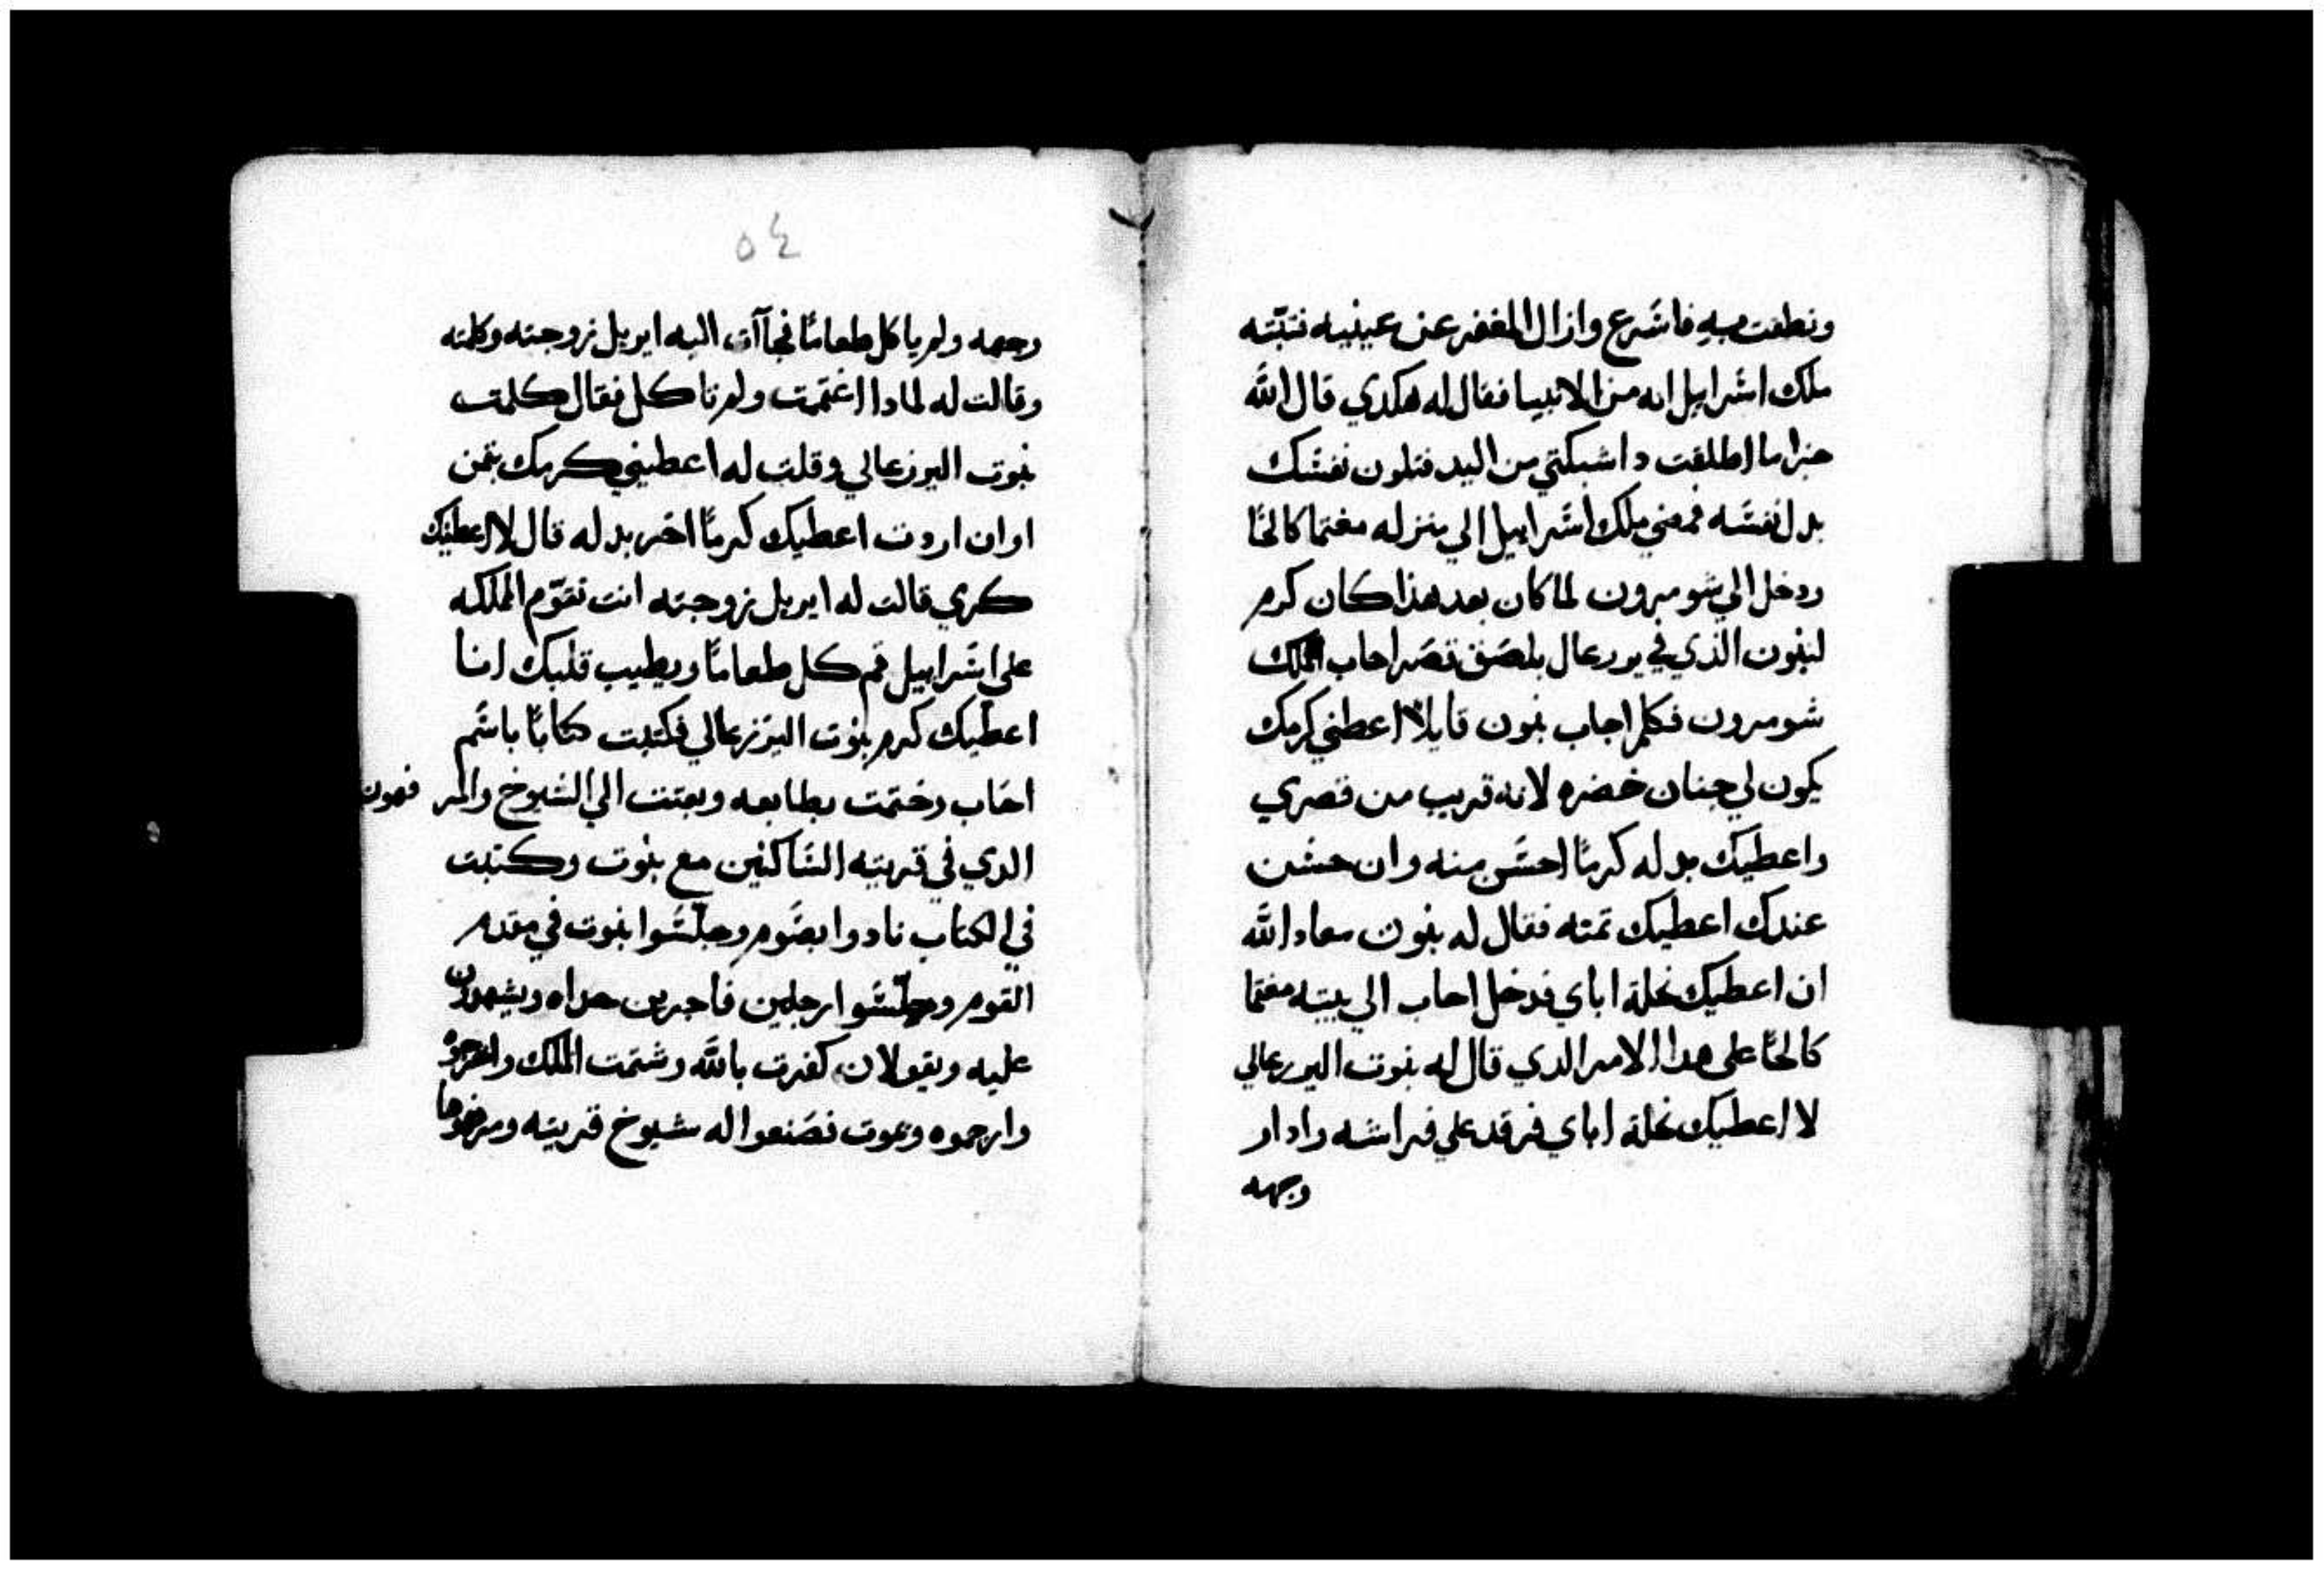 ونطقت به فاشرع وازال المغفر عن عينيه فتبته
ملك اشراييل انه من الانبيا فقال له هكدي قال الله
جزا ما اطلقت داشبكتي من اليد فتلون نفشك
بدل نفشه فمضي ملك اشراييل الي منزله مغتما كالحًا
ودخل الي شومرون لما كان بعد هذا كان كرم
لنبوت الذي في يورعال بلصق قصر احاب الملك
شومرون فكلم احاب نبوت قايلا اعطني كرمك
يكون لي جنان خضره لانه قريب من قصري
واعطيك بدله كرمًا احشن منه وان حشن
عندك اعطيك تمنه فقال له نبوت معاد الله
ان اعطيك نحلة اباي فدخل احاب الي بيته مغتما
كالحًا علي هدا الامر الدي قال له نبوت اليورعالي
لا اعطيك نحلة اباي فرقد علي فراشه وادار
وجهه
٥٤
وجهه ولم ياكل طعامًا فجاآت اليه ايزبل زوجته وكلمته
وقالت له لمادا اغتممت ولم تاكل فقال كلمت
نبوت اليورزعالي وقلت له اعطيني كرمك بتمن
او ان اردت اعطيك كرمًا اخر بدله قال لا اعطيك
كرمي قالت له ايزبل زوجته انت تقوّم المملكه
علي اشراييل قم كل طعامًا ويطيب قلبك انا
اعطيك كرم نبوت اليزرعالي فكتبت كتابًا باشم
احاب وختمت بطابعه وبعتت الي الشيوخ والمر فهون
الدي في قريته الشاكنين مع نبوت وكتبت
في الكتاب نادوا بصوم وجلّشوا نبوت في مقدم
القوم وجلّشوا رجلين فاجرين حداه ويشهدون
عليه ويقولان كفرت بالله وشتمت الملك واخرجوه
وارجموه ويموت فصنعوا له شيوخ قريته ومرفهوها